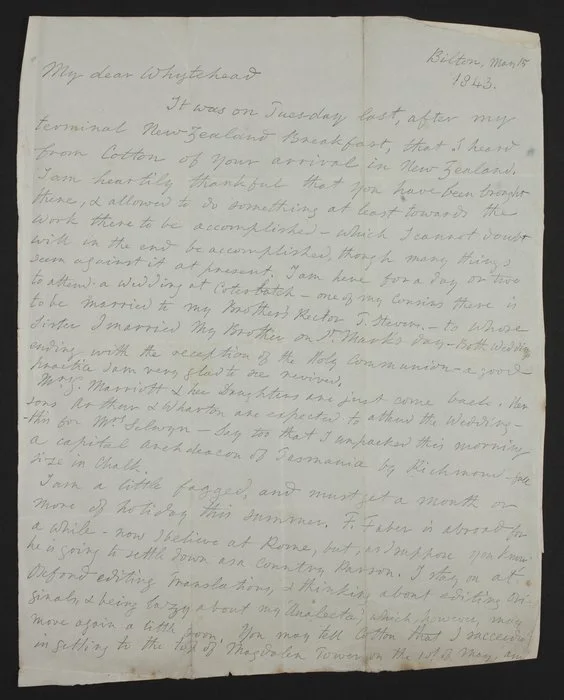 Bilton, May 15
1843.
My dear Whytehead
It was on Tuesday last, after my
terminal New Zealand Breakfast, that I heard
from Cotton of your arrival in New Zealand.
I am heartily thankful that you have been brought
there, & allowed to do something at least towards the
work there to be accomplished - which I cannot doubt
will in the end be accomplished, though many things
seem against it at present. I am here for a day or two
to attend a wedding at Cotesbatch - one of my cousins there is
to be married to my Brother's Rector T. Stevens - to whose
sister I married my Brother on St. Mark's day - Both Weddings
ending with the reception of the Holy Communion - a good
practice I am very glad to see revived.
Mrs G. Marriott & her Daughters are just come back. Her
sons Arthur & Wharton are expected to attend the Wedding -
- this for Mrs Selwyn - Say too that I unpacked this morning
a capital Archdeacon of Tasmania by Richmond - full
size in Chalk.
I am a little fagged, and must get a month or
more of holiday this summer. F. Faber is abroad for
a while - now I believe at Rome, but, as I suppose you know
he is going to settle down as a country Parson. I stay on at
Oxford editing Translations, & thinking about editing Ori-
ginals, & being lazy about my Analecta, which, however, may
move again a little soon. You may tell Cotton that I succeeded
in getting to the top of Magdalen Tower on the 1st of May, and